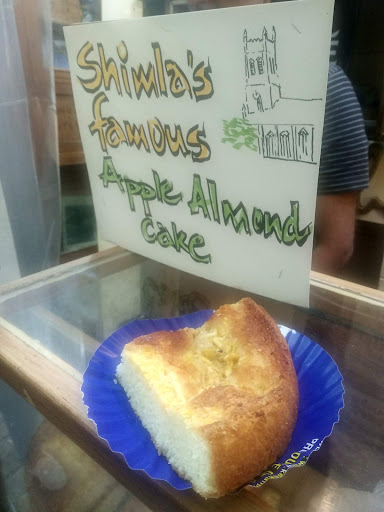 Shimla's
famous
Apple Almond
Cake